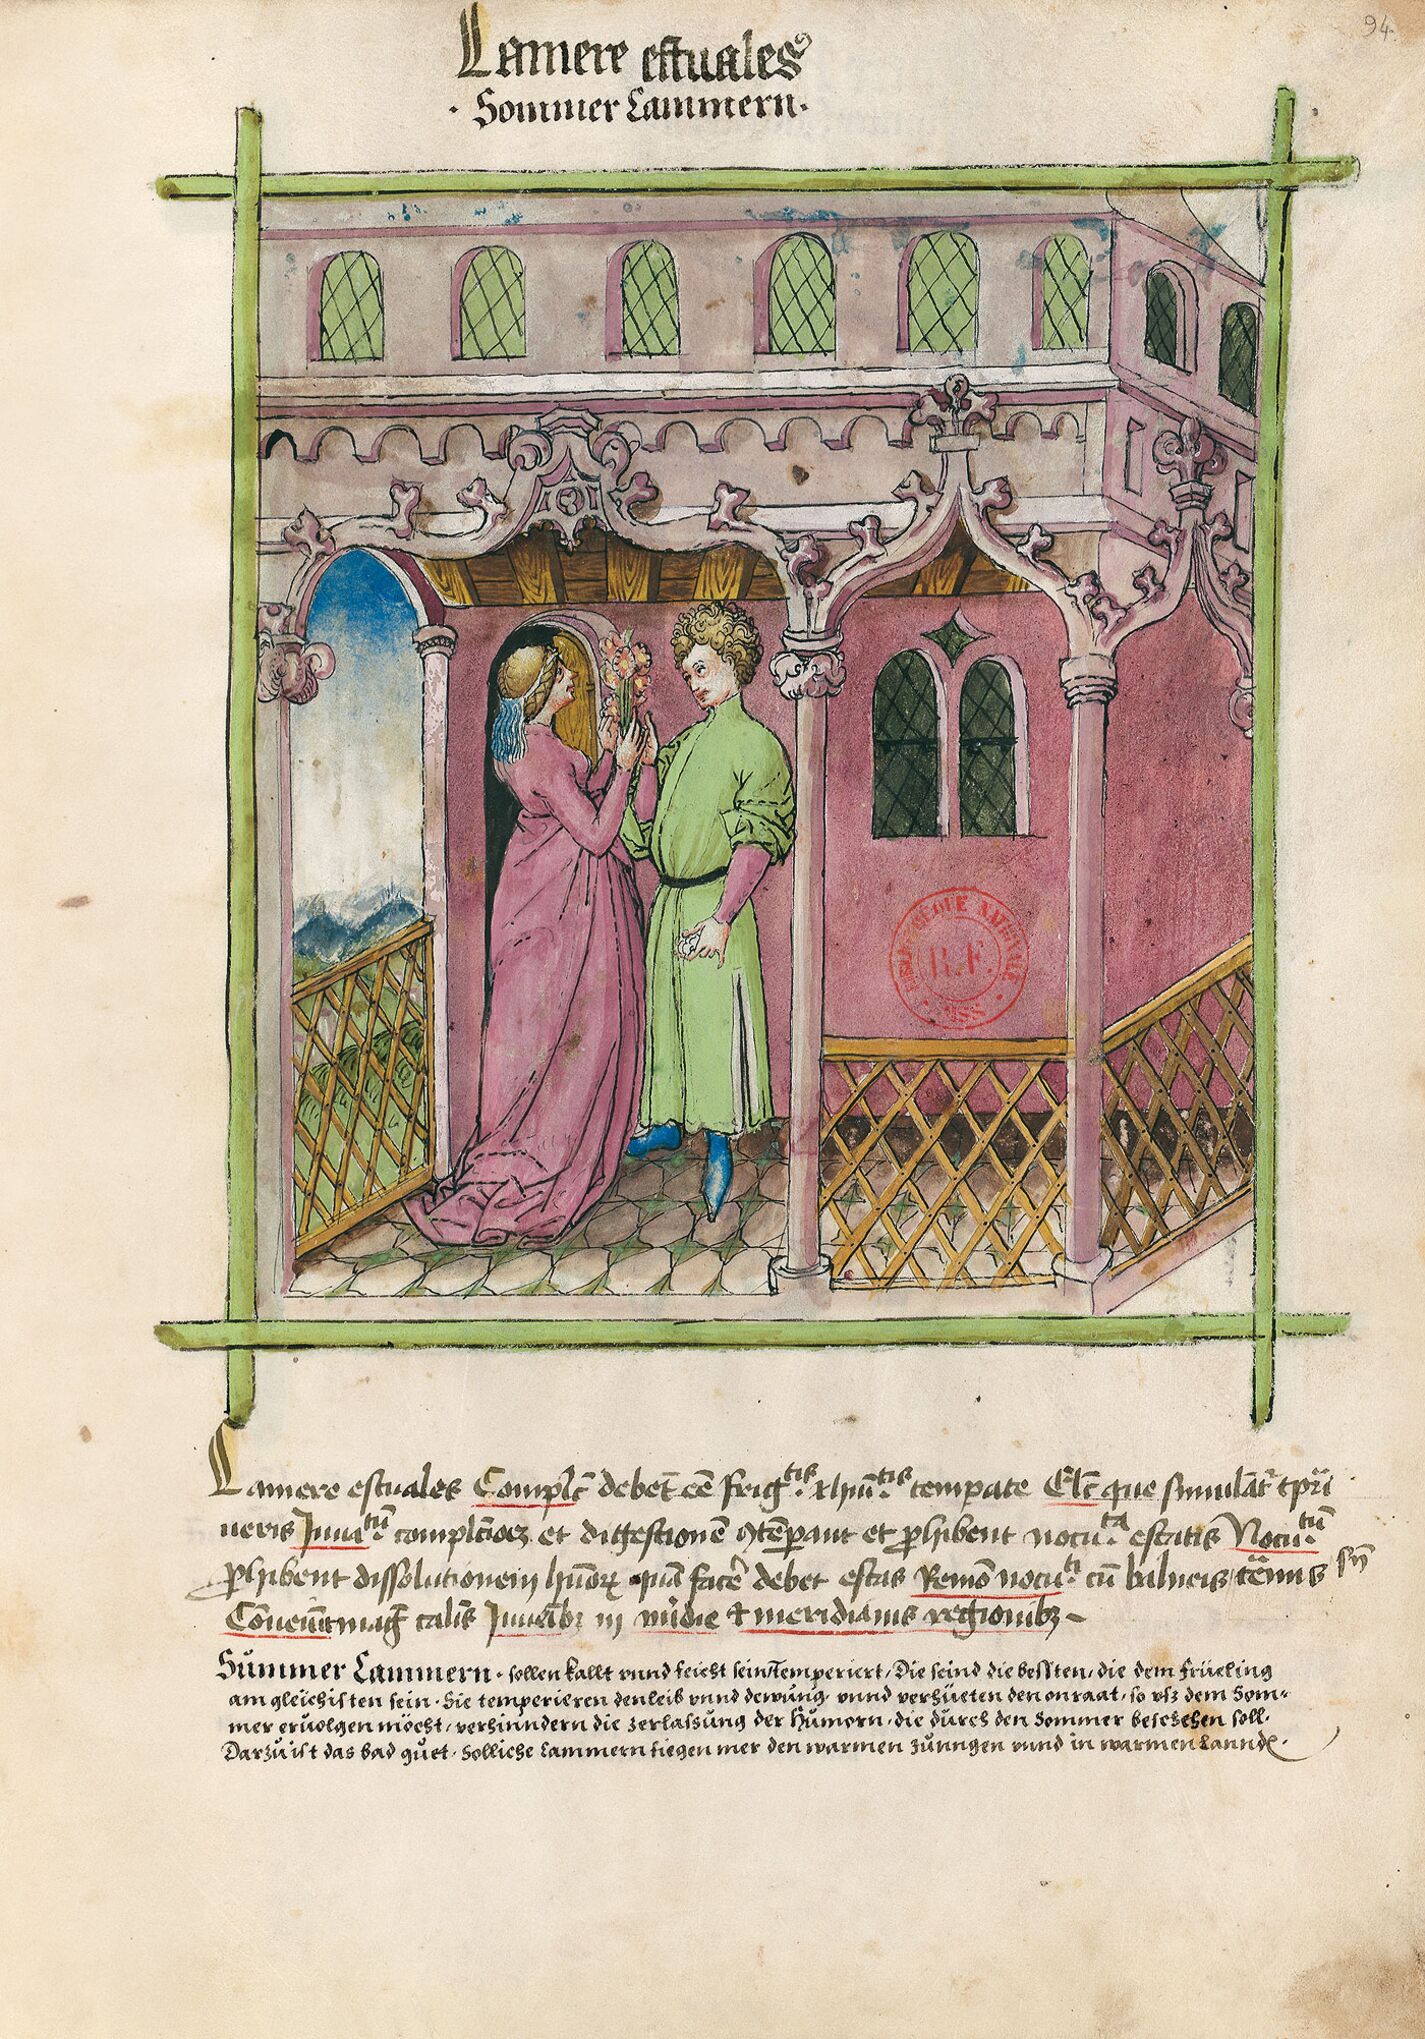 94.
Camere estuales
· Sommer Cammern ·
BIBLIOTHEQUE NATIONALE
R.F.
MSS
Camere estuales Complc̄ debēt eē frigtis· et humtis· temperate Elc̄ que simulātr tp̄ri
ueris Juuatū· complc̄ioēz et digestionē ꝯtēperant et ꝓhibent nocuta· estatis Nocutū·
ꝓhibent dissolutionem hūoꝝ quā facē debet estas Remō nocuti· cū balneis
Cōueniūt maḡ calis Juuenibꝫ in et meridianis regionibꝫ
Summer Cammern · sollen kallt vnnd feicht sein / Temperiert / Die seind die bessten / die dem Früeling
am gleichisten sein · Sie temperieren den leib vnnd dewung / vnnd verhüeten den onraat / so vsz dem Som-
mer eruolgen möcht / verhinndern die zerlassung der Humorn · die durch den Sommer beschehen soll ·
Darzu ist das bad guet · Solliche Cammern fiegen mer den warmen Junngen vnnd in warmen Lannd